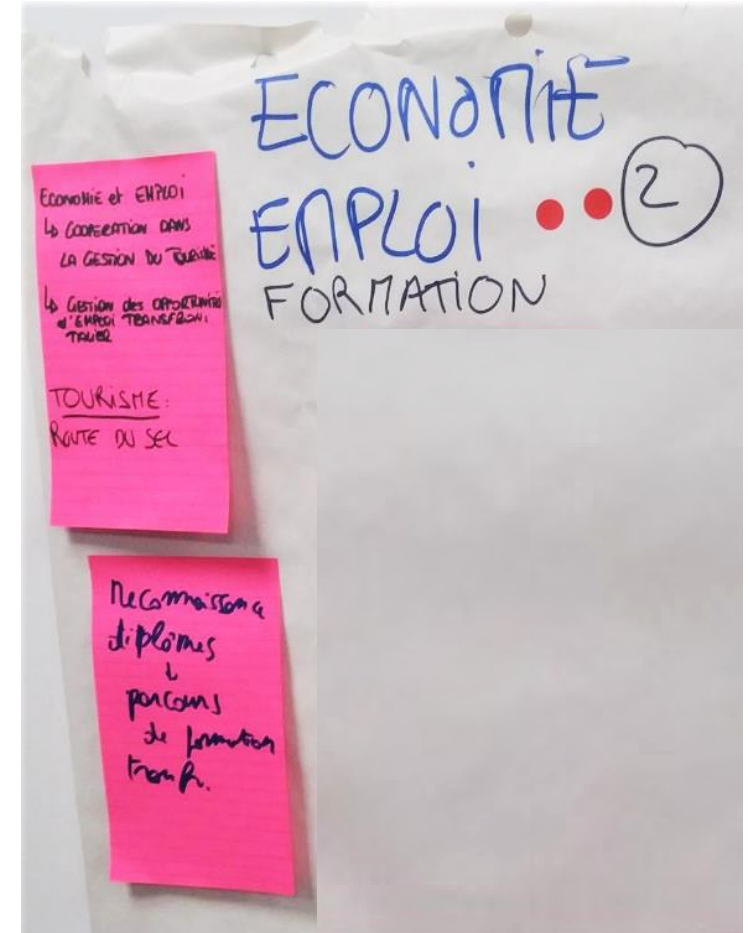 ECONOMIE
EMPLOI
2
FORMATION
ECONOMIE et EMPLOI
↳ COOPERATION DANS
LA GESTION DU TOURISME
↳ GESTION des OPPORTUNITÉS
d'EMPLOI TRANSFRON.
TALIER
TOURISME:
ROUTE DU SEL
Reconnaissance
diplômes
↓
parcours
de formation
transfr.